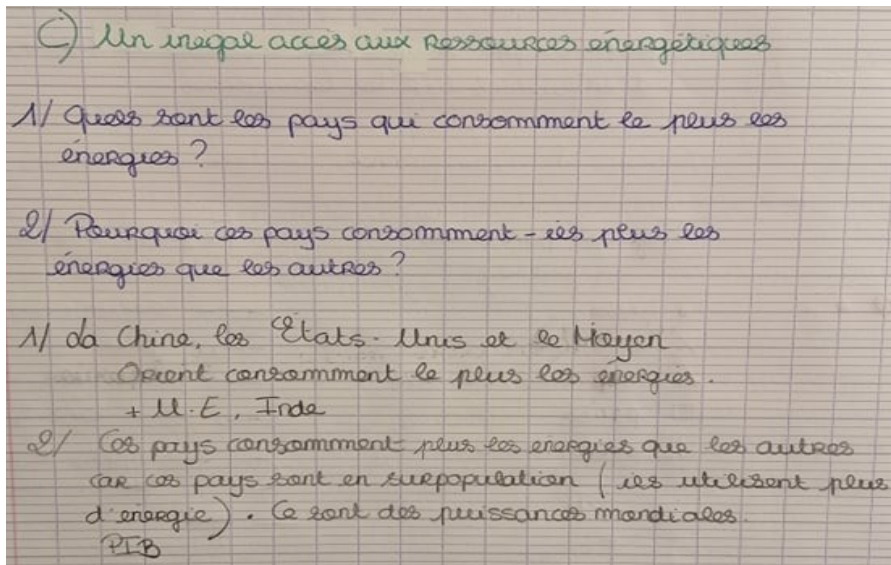 C) Un inegal accès aux ressources énergétiques
1/ Quels sont les pays qui consomment le plus les
énergies ?
2/ Pourquoi ces pays consomment-ils plus les
énergies que les autres ?
1/ La Chine, les États-Unis et le Moyen
Orient consomment le plus les énergies.
+ U.E, Inde
2/ Ces pays consomment plus les energies que les autres
car ces pays sont en surpopulation (ils utilisent plus
d'énergie). Ce sont des puissances mondiales.
PIB